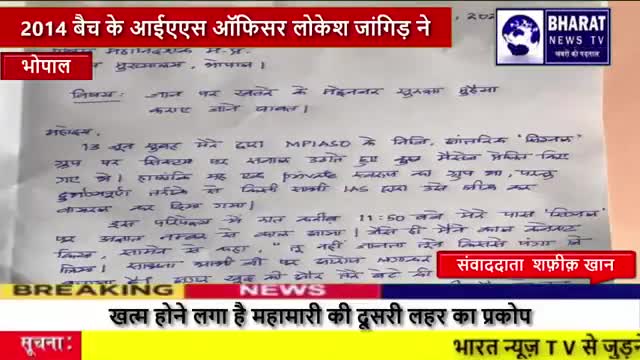 2014 बैच के आईएएस ऑफिसर लोकेश जांगिड़ ने
भोपाल
BHARAT
NEWS TV
खबरों की पड़ताल
मुख्यालय, भोपाल।
विषय: जान पर खतरे के मद्देनजर सुरक्षा मुहैया
कराए जाने बाबत।
महोदय,
13 जून सुबह मेरे द्वारा MPIASO के निजि, आंतरिक 'सिग्नल'
ग्रुप पर सिस्टम पर सवाल उठाते हुए कुछ मैसेज प्रेषित किए
गए थे। हालांकि यह एक private स्वरूप का ग्रुप था, परन्तु
दुर्भाग्यपूर्ण तरीके से किसी साथी IAS द्वारा उसे लीक कर
वायरल कर दिया गया।
इस परिपेक्ष्य में रात करीब 11:50 बजे मेरे पास 'सिग्नल'
पर अज्ञात नम्बर से काल आया। जैसे ही मैंने काल
किया, सामने से कहा, "तू नहीं जानता तूने किससे पंगा ले
लिया।
संवाददाता शफ़ीक़ खान
BREAKING NEWS
खत्म होने लगा है महामारी की दूसरी लहर का प्रकोप
सूचना:
भारत न्यूज़ TV से जुड़ने